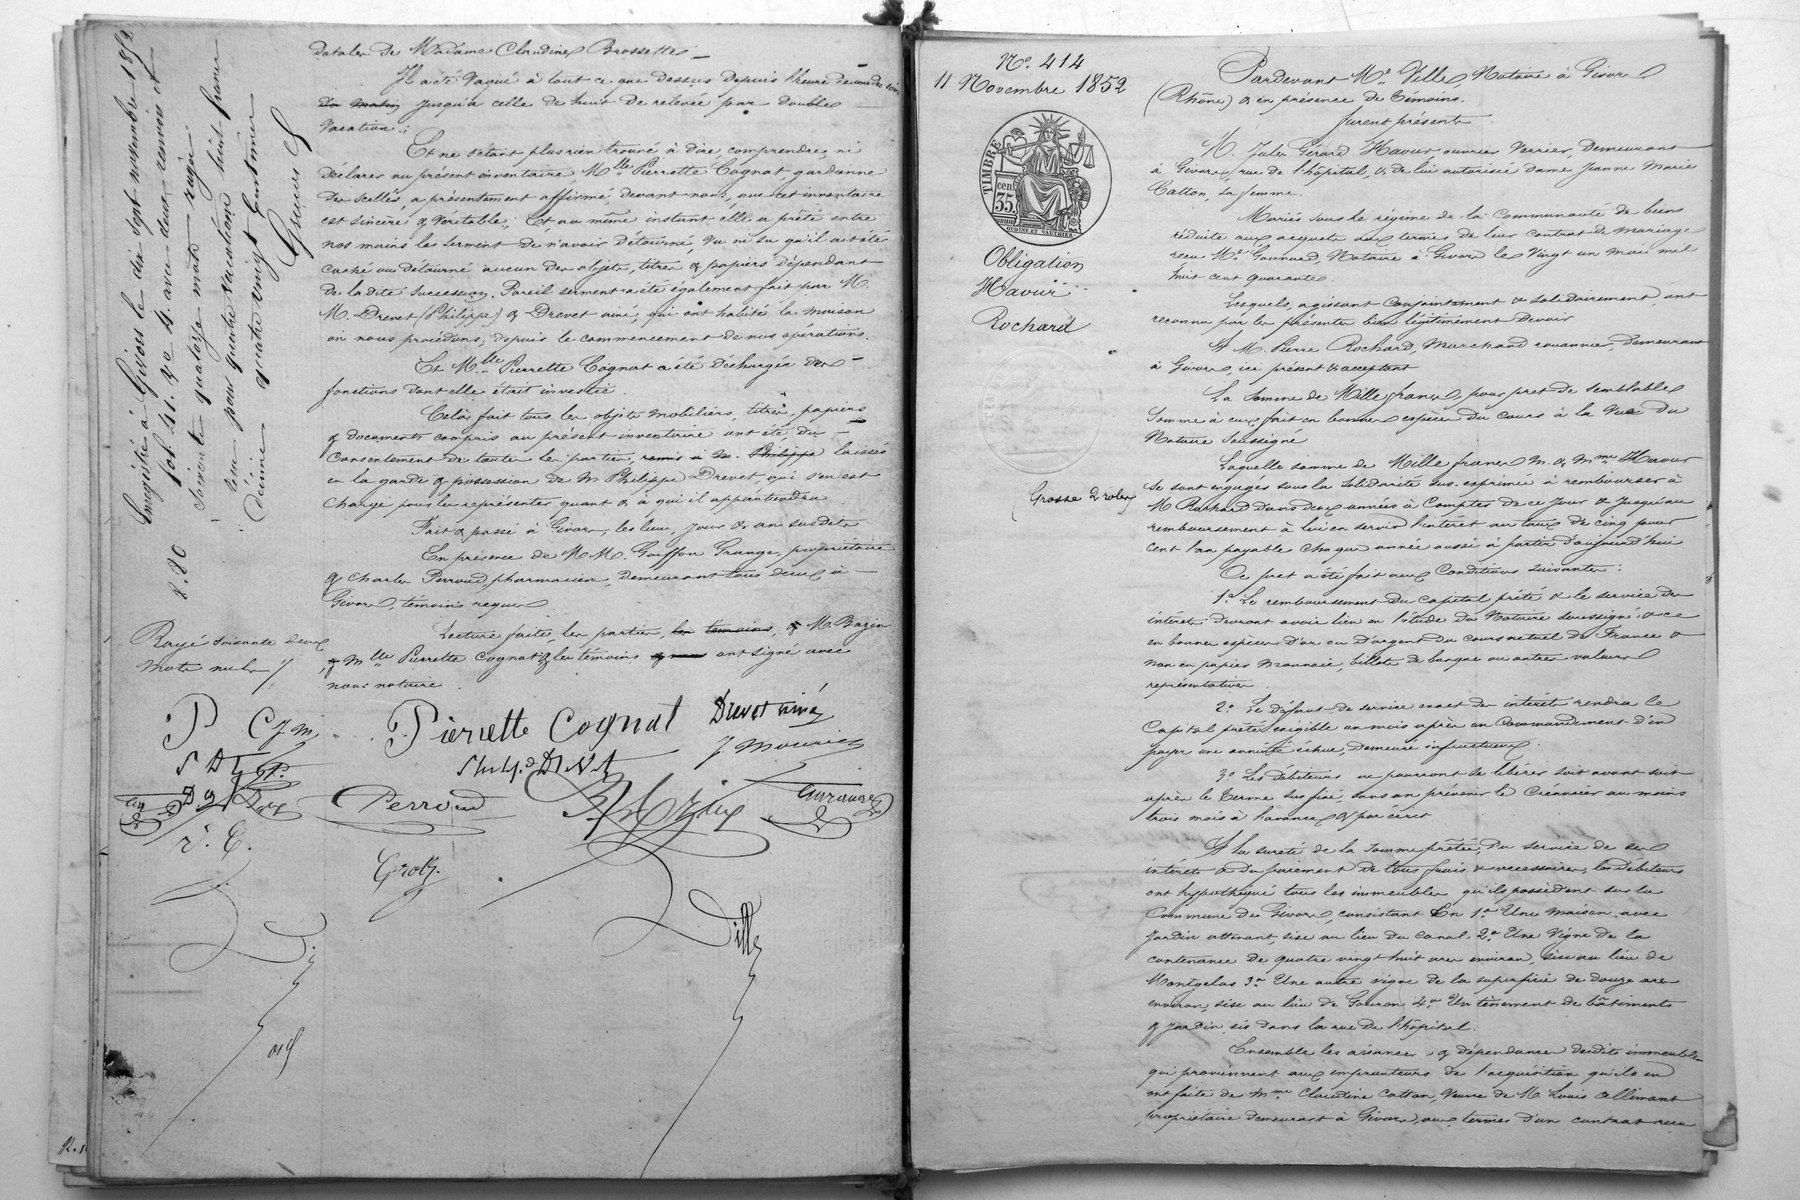 dotales de Madame Claudine Brossette
Il a été vaqué à tout ce que dessus depuis l'heure de une du soir
dix matin jusqu'à celle de huit de relevée par double
vacation.
Et ne s'étant plus rien trouvé à dire, comprendre, ni
déclarer au présent inventaire Mlle Pierrette Cognat gardienne
des scellés, a présentement affirmé devant nous, que cet inventaire
est sincère & véritable; Et au même instant elle a prêté entre
nos mains le serment de n'avoir détourné, vu ni su qu'il ait été
caché ou détourné aucun des objets, titres & papiers dépendant
de la dite succession. Pareil serment a été également fait par M.
M. Drevet (Philippe) & Drevet ainé, qui ont habité la maison
où nous procédons, depuis le commencement de nos opérations.
Et Mlle Pierrette Cognat a été déchargée des
fonctions dont elle était investie.
Celà fait tous les objets mobiliers, titres, papiers
& documents compris au présent inventaire ont été, du
consentement de toutes les parties, remis à M. Philippe laissés
en la garde & possession de M. Philippe Drevet, qui s'en est
chargé pour les représenter quand & à qui il appartiendra
Fait & passé à Givors, les lieu, jour & an susdits
En présence de MM. Goiffon Grange, propriétaire
& Charles Perroud, pharmacien, demeurant tous deux à
Givors, témoins requis
Lecture faite, les parties, les témoins, & M. Bazin
& Mlle Pierrette Cognat & les témoins ont signé avec
nous notaire.
Enregistré à Givors le dix sept novembre 1852
fol. 41. Vo. 4. avec deux renvois et
soixante quatorze mots rayés
reçu pour quatre vacations huit francs
Décime quatre vingt centimes
8.80
Rayé soixante deux
mots nuls
P
C J M
Pierrette Cognat
Drevet ainé
J. Mourier
Perroud
r. C.
Ville
No. 414
11 Novembre 1852
TIMBRE
35 cen
Obligation
Havur
Rochard
(Grosse 2 roles)
Pardevant Me Ville, Notaire à Givors
(Rhône) & en présence de témoins.
furent présents
M. Jules Gérard Havur ouvrier Verrier, Demeurant
à Givors, rue de l'hôpital, & de lui autorisée dame Jeanne Marie
Catton, sa femme.
Mariés sous le régime de la Communauté de biens
réduite aux acquets aux termes de leur contrat de Mariage
recu Me Gonnard, Notaire à Givors le Vingt un mai mil
huit cent quarante
Lesquels, agissant conjointement & solidairement, ont
reconnu par les présentes bien légitimement devoir
A M. Pierre Rochard, Marchand rouannier, demeurant
à Givors, ici présent & acceptant
La Somme de Mille francs, pour prêt de semblable
Somme à eux fait en bonnes espèces du cours à la vue du
Notaire soussigné
Laquelle somme de Mille francs M. & Mme Havur
se sont engagés sous la solidarité sus-exprimée à rembourser à
M Rochard dans deux années à Compter de ce jour & jusqu'au
remboursement à lui en servir l'intérêt au taux de cinq pour
cent l'an payable chaque année aussi à partir d'aujourd'hui
Ce prêt a été fait aux Conditions suivantes:
1o Le remboursement du capital prêté & le service des
intérêts devront avoir lieu en l'étude du Notaire soussigné; & ce
en bonnes espèces d'or ou d'argent du cours actuel de France &
non en papier monnaie, billets de banque ou autres valeurs
représentatives
2o Le défaut de service exact des intérêts rendra le
Capital prêté exigible un mois après un Commandement d'en
payer une annuité échue, demeuré infructueux.
3o Les débiteurs ne pourront se libérer soit avant soit
après le terme sus fixé, sans en prévenir le Créancier au moins
trois mois à l'avance & par écrit
A la sureté de la somme prêtée, du service de ses
intérêts & du paiement de tous frais & accessoires, les débiteurs
ont hypothéqué tous les immeubles qu'ils possèdent sur la
Commune de Givors, consistant En 1o Une maison avec
Jardin attenant, sise au lieu du Canal. 2o Une Vigne de la
contenance de quatre vingt huit ares environ, sise au lieu de
Montgelas 3o Une autre vigne de la superficie de douze ares
environ, sise au lieu de Gouron. 4o Un tènement de bâtiments
& jardin sis dans la rue de l'hôpital.
Ensemble les aisances & dépendances desdits immeubles
qui proviennent aux emprunteurs de l'acquisition qu'ils en
ont faite de Mme Claudine Catton, Veuve de M. Louis Allimant
propriétaire demeurant à Givors, aux termes d'un contrat recu